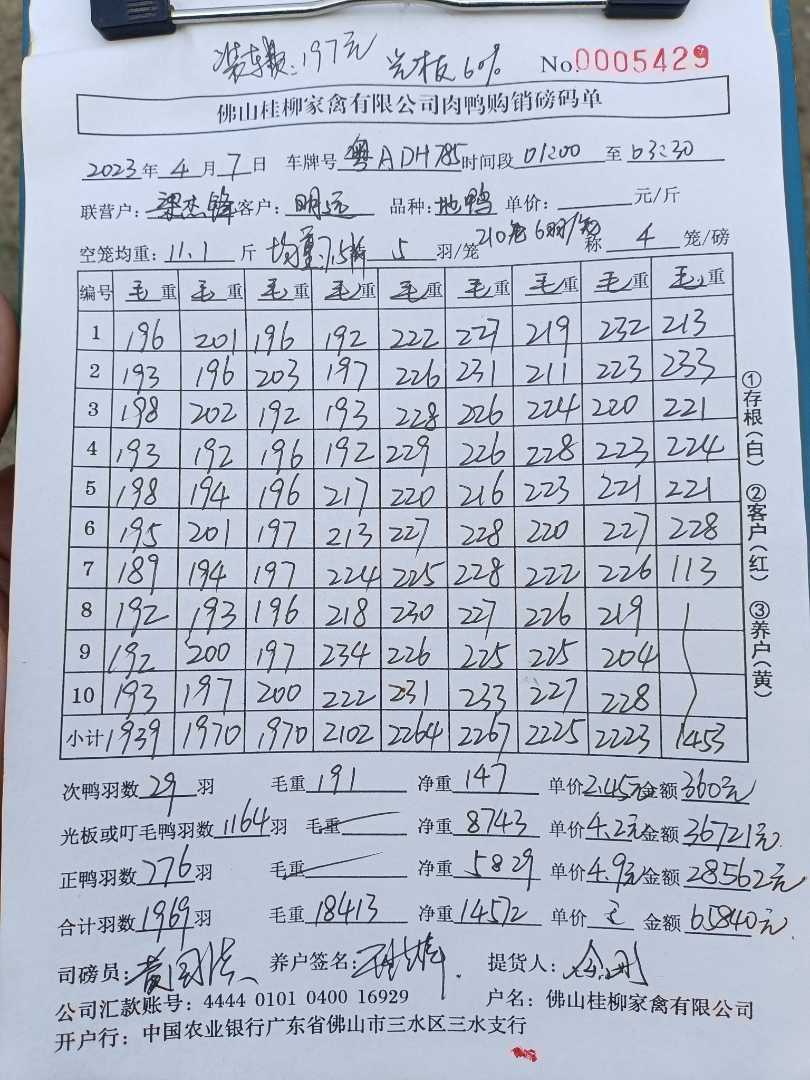 装车费:197元 光板60% No.0005429
佛山桂柳家禽有限公司肉鸭购销磅码单
2023年4月7日 车牌号 粤ADH785 时间段 01:00 至 03:30
联营户:梁杰锋 客户:明远 品种:地鸭 单价: 元/斤
空笼均重:11.1斤 均重:7.5斤 5羽/笼 210笼6羽/笼 称4笼/磅
编号 毛重 毛重 毛重 毛重 毛重 毛重 毛重 毛重 毛重
1 196 201 196 192 222 227 219 232 213
2 193 196 203 197 226 231 211 223 233
3 198 202 192 193 228 226 224 220 221
4 193 192 196 192 229 226 228 223 224
5 198 194 196 217 220 216 223 221 221
6 195 201 197 213 227 228 220 227 228
7 189 194 197 224 225 228 222 226 113
8 192 193 196 218 230 227 226 219
9 192 200 197 234 226 225 225 204
10 193 197 200 222 231 233 227 228
小计 1939 1970 1970 2102 2264 2267 2225 2223 1453
①存根(白) ②客户(红) ③养户(黄)
次鸭羽数29羽 毛重191 净重147 单价2.45元 金额360元
光板或叮毛鸭羽数1164羽 毛重 净重8743 单价4.2元 金额36721元
正鸭羽数776羽 毛重 净重5829 单价4.9元 金额28562元
合计羽数1969羽 毛重18413 净重14572 单价 金额65840元
司磅员: 养户签名: 提货人:
公司汇款账号:4444 0101 0400 16929 户名:佛山桂柳家禽有限公司
开户行:中国农业银行广东省佛山市三水区三水支行